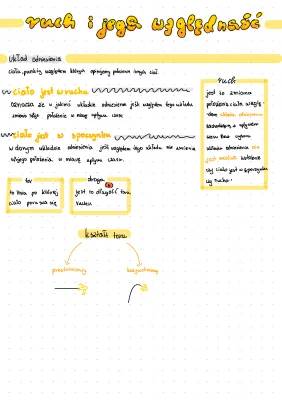 ruch i jego względność
Układ odniesienia
ciało, punkty względem których opisujemy położenie innych ciał
ciało jest w ruchu
oznacza że w jakimś układzie odniesienia jeśli względem tego układu
zmienia swoje położenie w miarę upływu czasu.
ciało jest w spoczynku
w danym układzie odniesienia jeśli względem tego układu nie zmienia
swojego położenia w miarę upływu czasu.
ruch
jest to zmiana
położenia ciała wzglę-
dem układu odniesienia
z upływem
czasu bez
układu odniesienia nie
jest możliwe
czy ciało jest w spoczynku
czy ruchu.
tor
to linia po której
ciało porusza się
droga
jest to długość toru
ruchu
kształt toru
prostoliniowy
krzywoliniowy